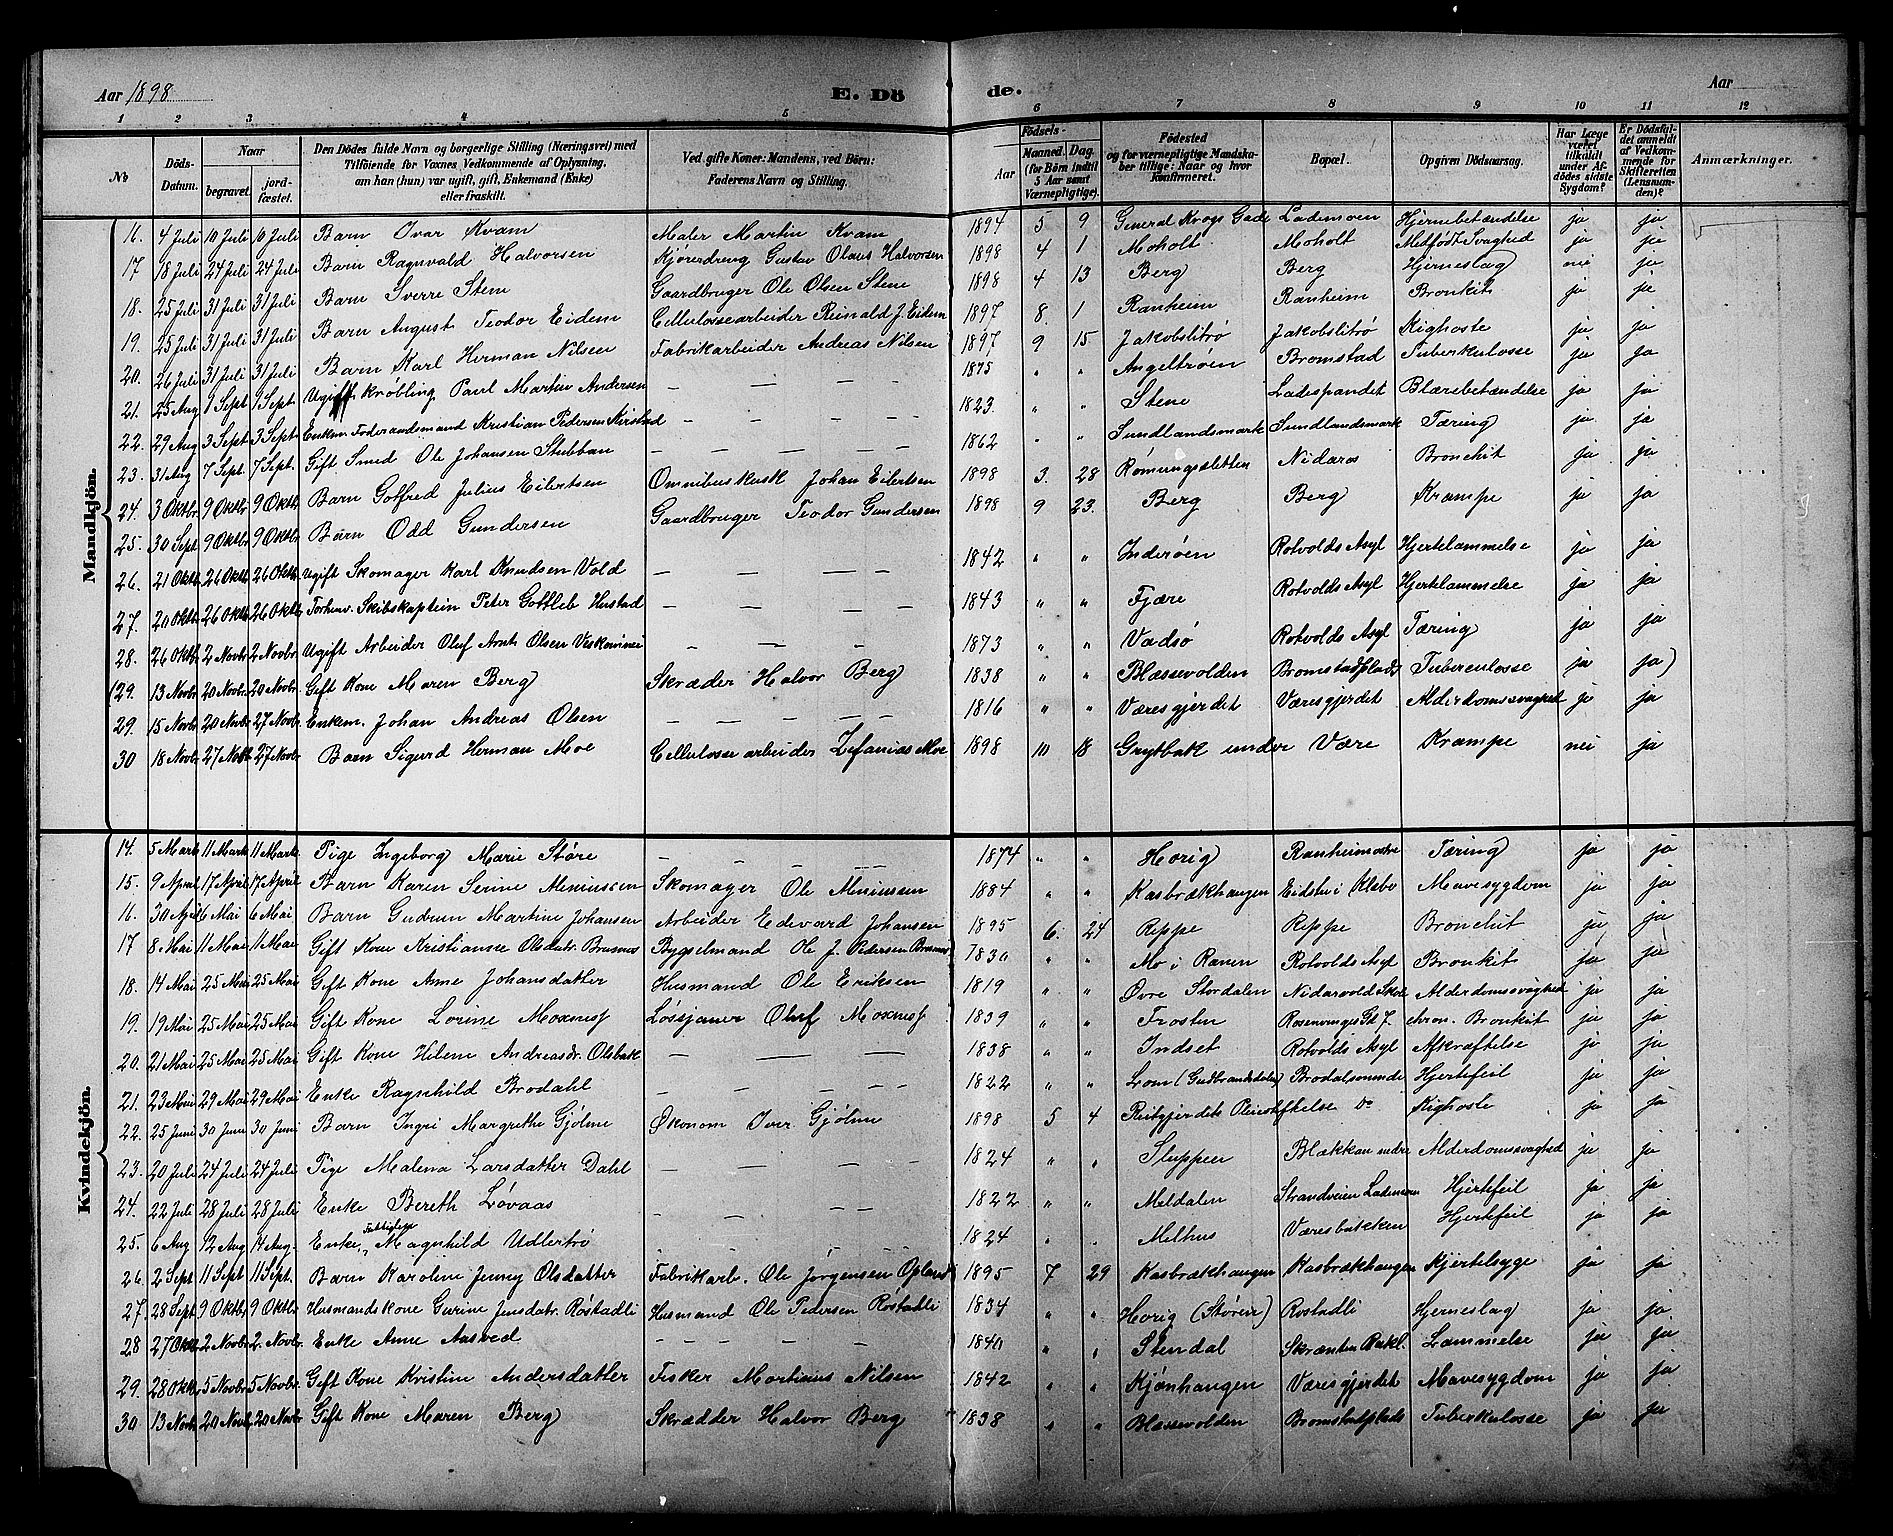 Aar 1898 E. Dö de. Aar
1 2 3 4 5 6 7 8 9 10 11 12
No Döds-Datum. Naar begravet. jordfæstet. Den Dödes fulde Navn og borgerlige Stilling (Næringsvei) med Tilföiende for Voxnes Vedkommende af Oplysning, om han (hun) var ugift, gift, Enkemand (Enke) eller fraskilt. Ved gifte Koner: Mandens, ved Börn: Faderens Navn og Stilling. Födsels- Aar Maaned. Dag. (for Börn indtil 5 Aar samt Værnepligtige). Födested og for værnepligtige Mandskaber tillige: Naar og hvor konfirmeret. Bopæl. Opgiven Dödsaarsag. Har Læge været tilkaldt under Afdödes sidste Sygdom? Er Dödsfaldet anmeldt af Vedkommende for Skifteretten (Lensmanden)? Anmærkninger.
Mandkjön.
16. 4 Juli 10 Juli 10 Juli Barn Ovar Kvam Maler Martin Kvam 1894 5 9 General Krogs Gade Lademoen Hjernebetændelse ja ja
17 18 Juli 24 Juli 24 Juli Barn Ragnvald Halvorsen Kjøredreng Gustav Olaus Halvorsen 1898 4 1 Moholt Moholt Medfødt Svaghed ja ja
18. 25 Juli 31 Juli 31 Juli Barn Sverre Stene Gaardbruger Ole Olsen Stene 1898 4 13 Berg Berg Hjerneslag nei ja
19. 25 Juli 31 Juli 31 Juli Barn August Teodor Eidem Cellulossearbeider Reinald J. Eidem 1897 8. 1 Ranheim Ranheim Bronkit ja ja
20. 26 Juli 31 Juli 31 Juli Barn Karl Herman Nilsen Fabrikarbeider Andreas Nilsen 1897 9 15 Jakobslitrø Jakobslitrø Kighoste ja ja
21. 25 Aug 1 Sept 1 Sept Ugift Krøbling Paul Martin Andersen — — — 1875 " " Angeltrøen Bromstad Tuberkulosse ja ja
22. 29 Aug 3 Sept 3 Sept Enkm. Foderaadsmand Kristian Pedersen — — — 1823. " " Stene Ladespandet Blærebetændelse ja ja
23. 31 Aug 7 Sept. 7 Sept. Gift Smed Ole Johansen Stubban — — — 1862 " " Sundlandsmark Sundlandsmark Tæring ja ja
24. 3 Oktbr 9 Oktbr 9 Oktbr Barn Gotfred Julius Eilertsen Omnibuskusk Johan Eilertsen 1898 3. 28 Rømungsletten Nidaros Bronchit ja ja
25. 30 Sept 9 Oktbr 9 Oktbr Barn Odd Gundersen Gaardbruger Teodor Gundersen 1898 9 23. Berg Berg Krampe ja ja
26. 21 Oktbr 26 Oktbr 26 Oktbr Ugift Skomager Karl Knudsen Vold — — — 1842 " " Inderøen Rotvolds Asyl Hjertelammelse ja ja
27. 20 Oktbr 26 Oktbr 26 Oktbr Forhenv. Skibskaptein Peter Gottlieb Hustad — — — 1843 " " Fjære Rotvolds Asyl Hjertelammelse ja ja
28. 26 Oktbr 2 Novbr 2 Novbr Ugift Arbeider Oluf Arnt Olsen — — — 1873 " " Vadsø Rotvolds Asyl Tæring ja ja
(29. 13 Novbr 20 Novbr 20 Novbr Gift Kone Maren Berg Skræder Halvor Berg 1838 " " Blæssevolden Bromstadplads Tuberculosse ja ja)
29. 15 Novbr 20 Novbr 27 Novbr Enkem. Johan Andreas Olsen — — — 1816 " " Væresgjerdet Væresgjerdet Alderdomssvaghed ja ja
30 18 Novbr 27 Novbr 27 Novbr Barn Sigurd Herman Moe Cellulosse arbeider Zefanias Moe 1898 10 18 Grytbak under Være Krampe nei ja
Kvindekjön.
14. 5 Marts 11 Marts 11 Marts Pige Ingeborg Marie Støre — — — 1874 " " Horig Ranheim østre Tæring ja ja
15. 9 April 17 April 17 April Barn Karen Serine Skomager Ole 1884 " " Kasbrækhaugen Eidstu i Klæbo Mavesygdom ja ja
16. 30 April 6 Mai 6 Mai Barn Gudrun Martine Johansen Arbeider Edevard Johansen 1895 6. 24 Reppe Reppe Bronchit ja ja
17 8 Mai 11 Mai 11 Mai Gift Kone Kristianse Olsdatr. Bygselmand Ole J. Pedersen 1830 " " Mo i Ranen Rotvolds Asyl Bronkit ja ja
18. 14 Mai 25 Mai 25 Mai Gift Kone Anne Johansdatter Husmand Ole Eriksen 1819 " " Øvre Stordalen Nidarvold Skole Alderdomssvaghed ja ja
19. 19 Mai 25 Mai 25 Mai Gift Kone Lorine Moxness Løssjauer Oluf Moxness 1839 " " Frosten Rosenvinges Gd 7. chron. Bronkit ja ja
20. 21 Mai 25 Mai 25 Mai Gift Kone Helene Andreasdr. Olsbak — — — 1838 " " Indset Rotvolds Asyl Afkræftelse ja ja
21. 23 Mai 29 Mai 29 Mai Enke Ragnhild Brodahl — — — 1822 " " Lom (Gudbrandsdalen) Hjertefeil ja ja
22. 25 Juni 30 Juni 30 Juni Barn Ingri Margrethe Gjølme Økonom Iver Gjølme 1898 5 4 Reitgjerdets Pleiestiftelse Do Kighoste ja ja
23. 20 Juli 24 Juli 24 Juli Pige Malena Larsdatter Dahl — — — 1824 " " Sluppen Blækkan nedre Alderdomssvaghed ja ja
24. 22 Juli 28 Juli 28 Juli Enke Bereth Løvaas — — — 1822 " " Meldalen Strandveien Lademoen Hjertefeil ja ja
25. 6 Aug 12 Aug 14 Aug. Enke, Fattiglem Magnhild Udlertrø — — — 1824 " " Melhus Væresbakken Hjertefeil ja ja
26. 2 Sept 11 Sept 11 Sept. Barn Karoline Jenney Olsdatter Fabrikarb. Ole Jørgensen Opland 1895 7 29 Kasbrækhaugen Kasbrækhaugen Kjertelsyge ja ja
27. 28 Sept. 9 Oktbr 9 Oktbr Husmandskone Gurine Jensdatr. Røstadli Husmand Ole Pedersen Rostadli 1834 " " Horig (Støren) Rostadli Hjerneslag ja ja
28 27 Okt 2 Novbr 2. Novbr. Enke Anne Aasved — — — 1840 " " Stendal Skrænten Bakl. Lammelse ja ja
29. 28 Okt 5 Novbr 5 Novbr Gift Kone Kristine Andersdatter Fisker Martinius Nilsen 1842 " " Kjønhaugen Væresgjerdet Mavesygdom ja ja
30 13 Novb 20 Novb 20 Novbr Gift Kone Maren Berg Skrædder Halvor Berg 1838 " " Blæssevolden Bromstadplads Tuberkulosse ja ja